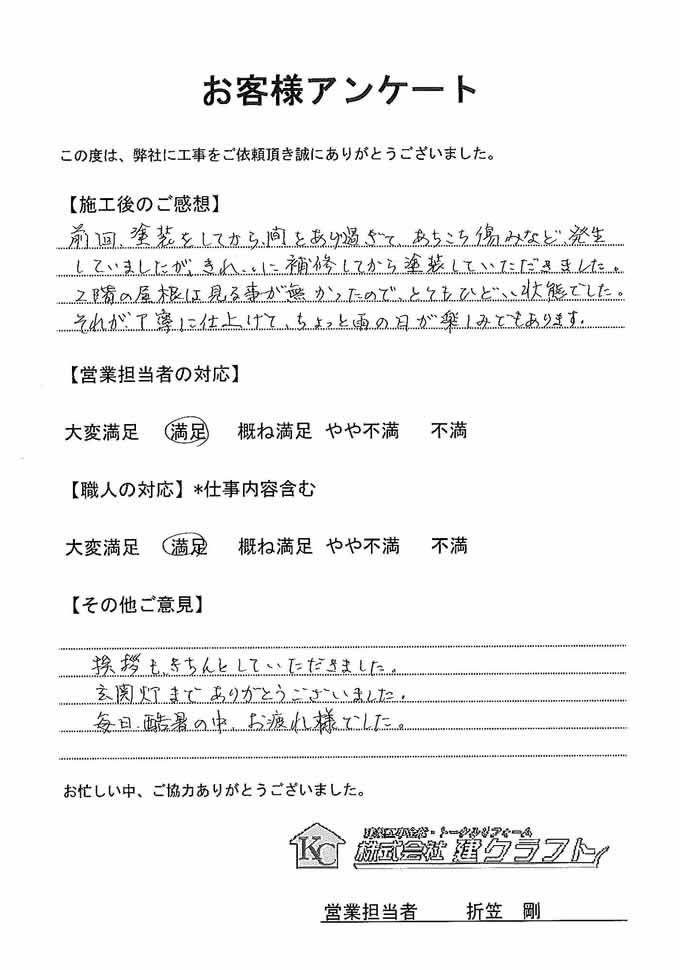 お客様アンケート
この度は、弊社に工事をご依頼頂き誠にありがとうございました。
【施工後のご感想】
前回、塗装をしてから、間をあけ過ぎて、あちこち傷みなど、発生
していましたが、きれいに補修してから塗装していただきました。
2階の屋根は見る事が無かったので、とてもひどい状態でした。
それが、丁寧に仕上げて、ちょっと雨の日が楽しみでもあります。
【営業担当者の対応】
大変満足 満足 概ね満足 やや不満 不満
【職人の対応】*仕事内容含む
大変満足 満足 概ね満足 やや不満 不満
【その他ご意見】
挨拶も、きちんとしていただきました。
玄関灯まで ありがとうございました。
毎日、酷暑の中、お疲れ様でした。
お忙しい中、ご協力ありがとうございました。
KC
トータルリフォーム
株式会社 建クラフト
営業担当者 折笠 剛